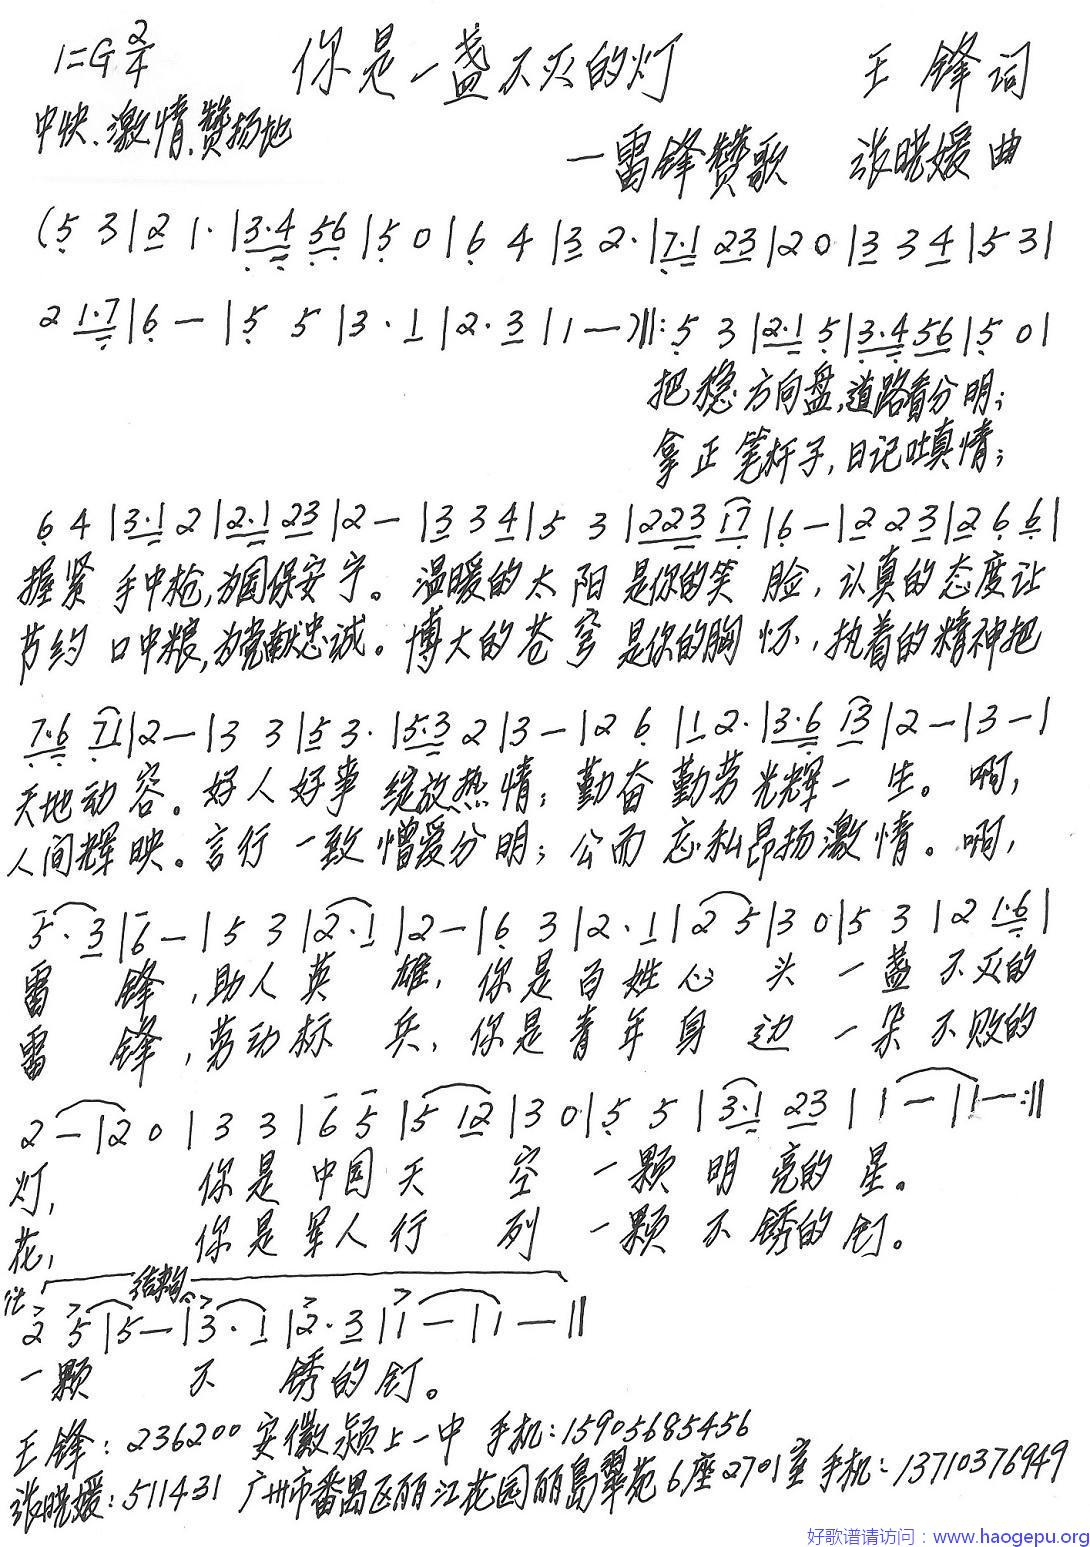 1=G 2/4 你是一盏不灭的灯 王锋词
中快、激情、赞扬地
—雷锋赞歌 张晓媛曲
(5 3|2 1·|3·4 56|5 0|6 4|3 2·|7·1 23|2 0|3 3 4|5 3|
2 1·7|6 —|5 5|3·1|2·3|1 —)‖:5 3|2·1 5|3·4 56|5 0|
把稳方向盘,道路看分明;
拿正笔杆子,日记吐真情;
6 4|3·1 2|2·1 23|2 —|3 3 4|5 3|223 17|6 —|2 2 3|2 6 6|
握紧手中枪,为国保安宁。温暖的太阳是你的笑脸,认真的态度让
节约口中粮,为党献忠诚。博大的苍穹是你的胸怀,执着的精神把
7·6 71|2 —|3 3|5 3·|5·3 2|3 —|2 6|1 2·|3·6 13|2 —|3 —|
天地动容。好人好事绽放热情;勤奋勤劳光辉一生。啊,
人间辉映。言行一致憎爱分明;公而忘私昂扬激情。啊,
5·3|6 —|5 3|2·1|2 —|6 3|2·1|2 5|3 0|5 3|2 1·6|
雷锋,助人英雄,你是百姓心头一盏不灭的
雷锋,劳动标兵,你是青年身边一朵不败的
2 —|2 0|3 3|6 5|5 12|3 0|5 5|3·1 23|1 —|1 —:‖
灯,你是中国天空一颗明亮的星。
花,你是军人行列一颗不锈的钉。
结束句
2 5|5 —|3·1|2·3|1 —|1 —‖
一颗不锈的钉。
王锋:236200 安徽颍上一中 手机:15905685456
张晓媛:511431 广州市番禺区丽江花园丽岛翠苑6座2701室 手机:13710376949
好歌谱请访问:www.haogepu.org